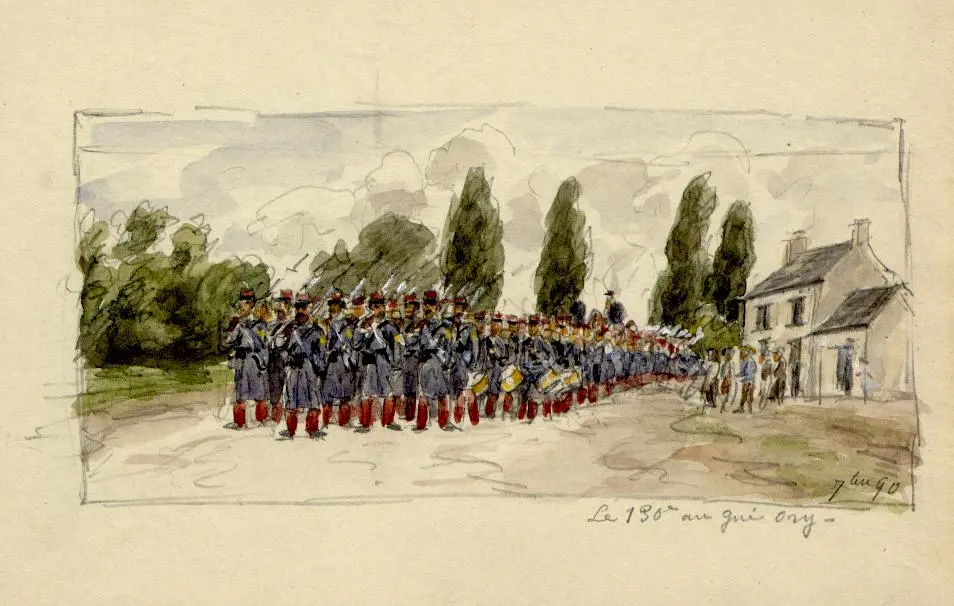 7 bre 90
Le 130e au gué Ory -